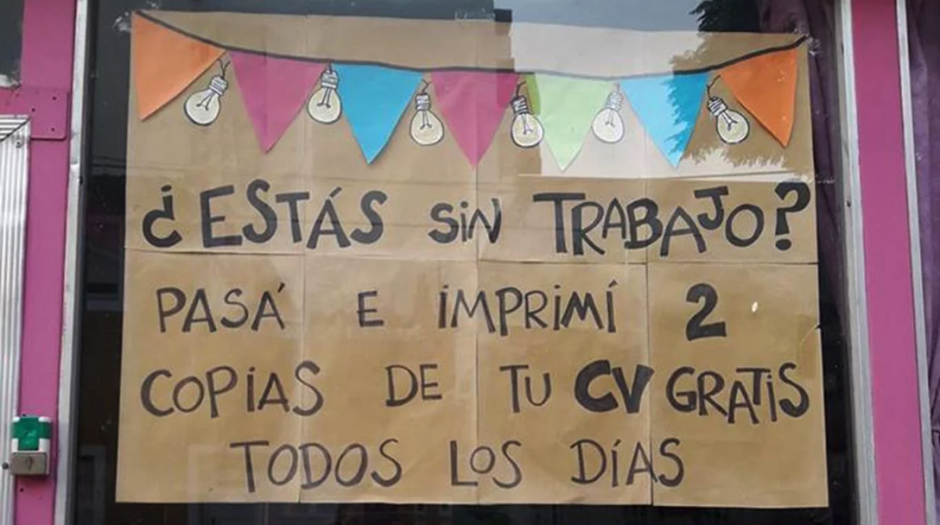 ¿ESTÁS SIN TRABAJO?
PASÁ E IMPRIMÍ 2
COPIAS DE TU CV GRATIS
TODOS LOS DÍAS